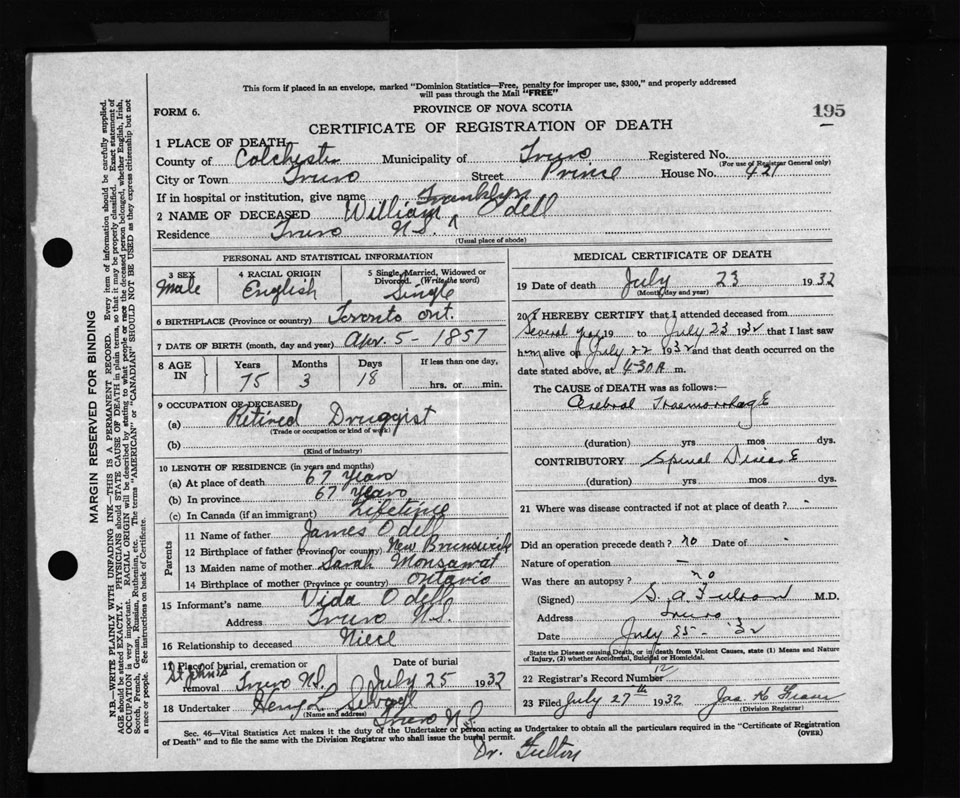 This form if placed in an envelope, marked "Dominion Statistics—Free, penalty for improper use, $300," and properly addressed
will pass through the Mail "FREE"
FORM 6.
PROVINCE OF NOVA SCOTIA
195
CERTIFICATE OF REGISTRATION OF DEATH
1 PLACE OF DEATH
County of Colchester Municipality of Truro Registered No.
(For use of Registrar General only)
City or Town Truro Street Prince House No. 421
If in hospital or institution, give name
Franklyn
2 NAME OF DECEASED William ^ Odell
Residence Truro N.S.
(Usual place of abode)
PERSONAL AND STATISTICAL INFORMATION
3 SEX Male
4 RACIAL ORIGIN English
5 Single, Married, Widowed or Divorced. (Write the word) Single
6 BIRTHPLACE (Province or country) Toronto Ont.
7 DATE OF BIRTH (month, day and year) Apr. 5 - 1857
8 AGE IN Years 75 Months 3 Days 18 If less than one day, hrs. or min.
9 OCCUPATION OF DECEASED
(a) Retired Druggist
(Trade or occupation or kind of work)
(b)
(Kind of industry)
10 LENGTH OF RESIDENCE (in years and months)
(a) At place of death 67 Years
(b) In province 67 Years
(c) In Canada (if an immigrant) Lifetime
Parents
11 Name of father James Odell
12 Birthplace of father (Province or country) New Brunswick
13 Maiden name of mother Sarah
14 Birthplace of mother (Province or country) Ontario
15 Informant's name Vida Odell
Address Truro N.S.
16 Relationship to deceased Niece
17 Place of burial, cremation or removal St John's Truro N.S. Date of burial July 25 1932
18 Undertaker Henry
(Name and address) Truro N.S.
MEDICAL CERTIFICATE OF DEATH
19 Date of death July 23 1932
(Month, day and year)
20 I HEREBY CERTIFY that I attended deceased from
Several 19 to July 23 1932 that I last saw
him alive on July 22 1932 and that death occurred on the
date stated above, at 4-30 A m.
The CAUSE of DEATH was as follows:—
Cerebral Haemorrhage
(duration) yrs mos dys.
CONTRIBUTORY Spinal Disease
(duration) yrs mos dys.
21 Where was disease contracted if not at place of death? -
Did an operation precede death? no Date of -
Nature of operation —
Was there an autopsy? no
(Signed) S. A. Fulton M.D.
Address Truro
Date July 25 - '32
State the Disease causing Death, or in death from Violent Causes, state (1) Means and Nature
of Injury, (2) whether Accidental, Suicidal or Homicidal.
22 Registrar's Record Number
23 Filed July 27th 1932 Jas. H.
(Division Registrar)
Sec. 46—Vital Statistics Act makes it the duty of the Undertaker or person acting as Undertaker to obtain all the particulars required in the "Certificate of Registration
of Death" and to file the same with the Division Registrar who shall issue the burial permit. (OVER)
Dr. Fulton
MARGIN RESERVED FOR BINDING
N.B.—WRITE PLAINLY WITH UNFADING INK—THIS IS A PERMANENT RECORD. Every item of information should be carefully supplied.
AGE should be stated EXACTLY. PHYSICIANS should STATE CAUSE OF DEATH in plain terms, so that it may be properly classified. Exact statement of
OCCUPATION is very important. RACIAL ORIGIN will be described by stating to what people or race the deceased person belonged, whether English, Irish,
Scotch, French, German, Russian, Ruthenian, etc. The terms "AMERICAN" or "CANADIAN" SHOULD NOT BE USED as they express citizenship but not
a race or people. See instructions on back of Certificate.